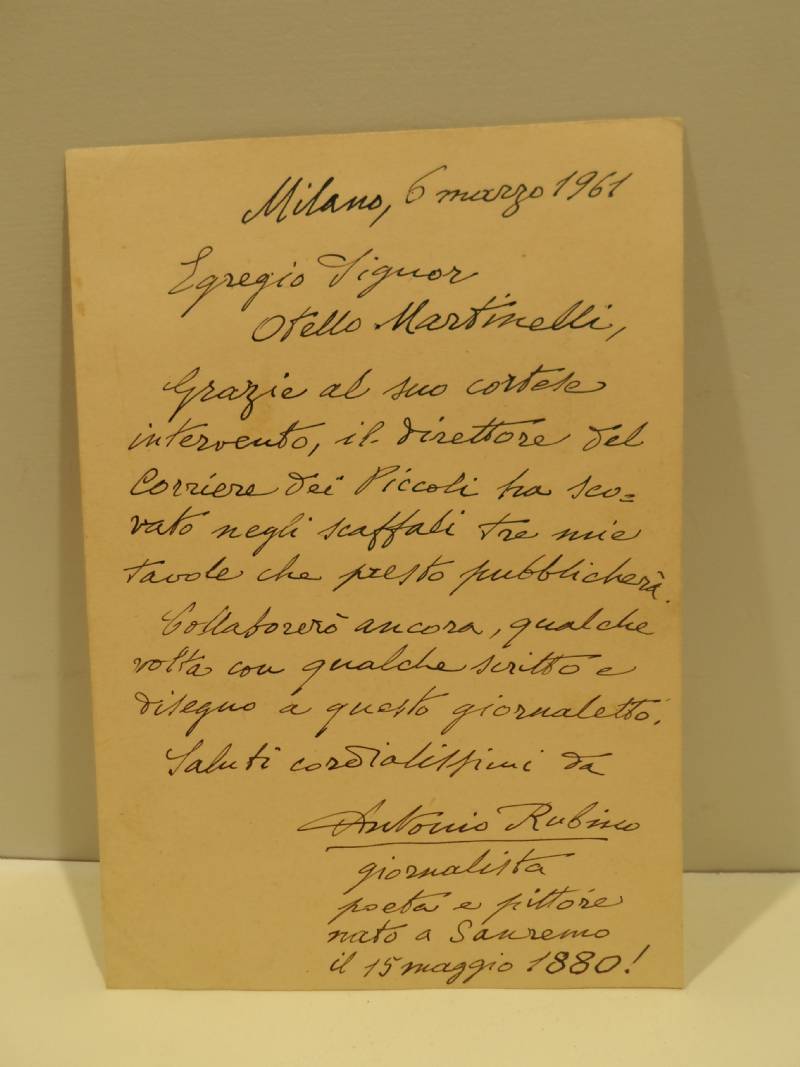 Milano, 6 marzo 1961
Egregio Signor
Otello Martinelli,
Grazie al suo cortese
intervento, il direttore del
Corriere dei Piccoli ha sco=
vato negli scaffali tre mie
tavole che presto pubblicherà.
Collaborerò ancora, qualche
volta con qualche scritto e
disegno a questo giornaletto.
Saluti cordialissimi da
Antonio Rubino
giornalista
poeta e pittore
nato a Sanremo
il 15 maggio 1880!